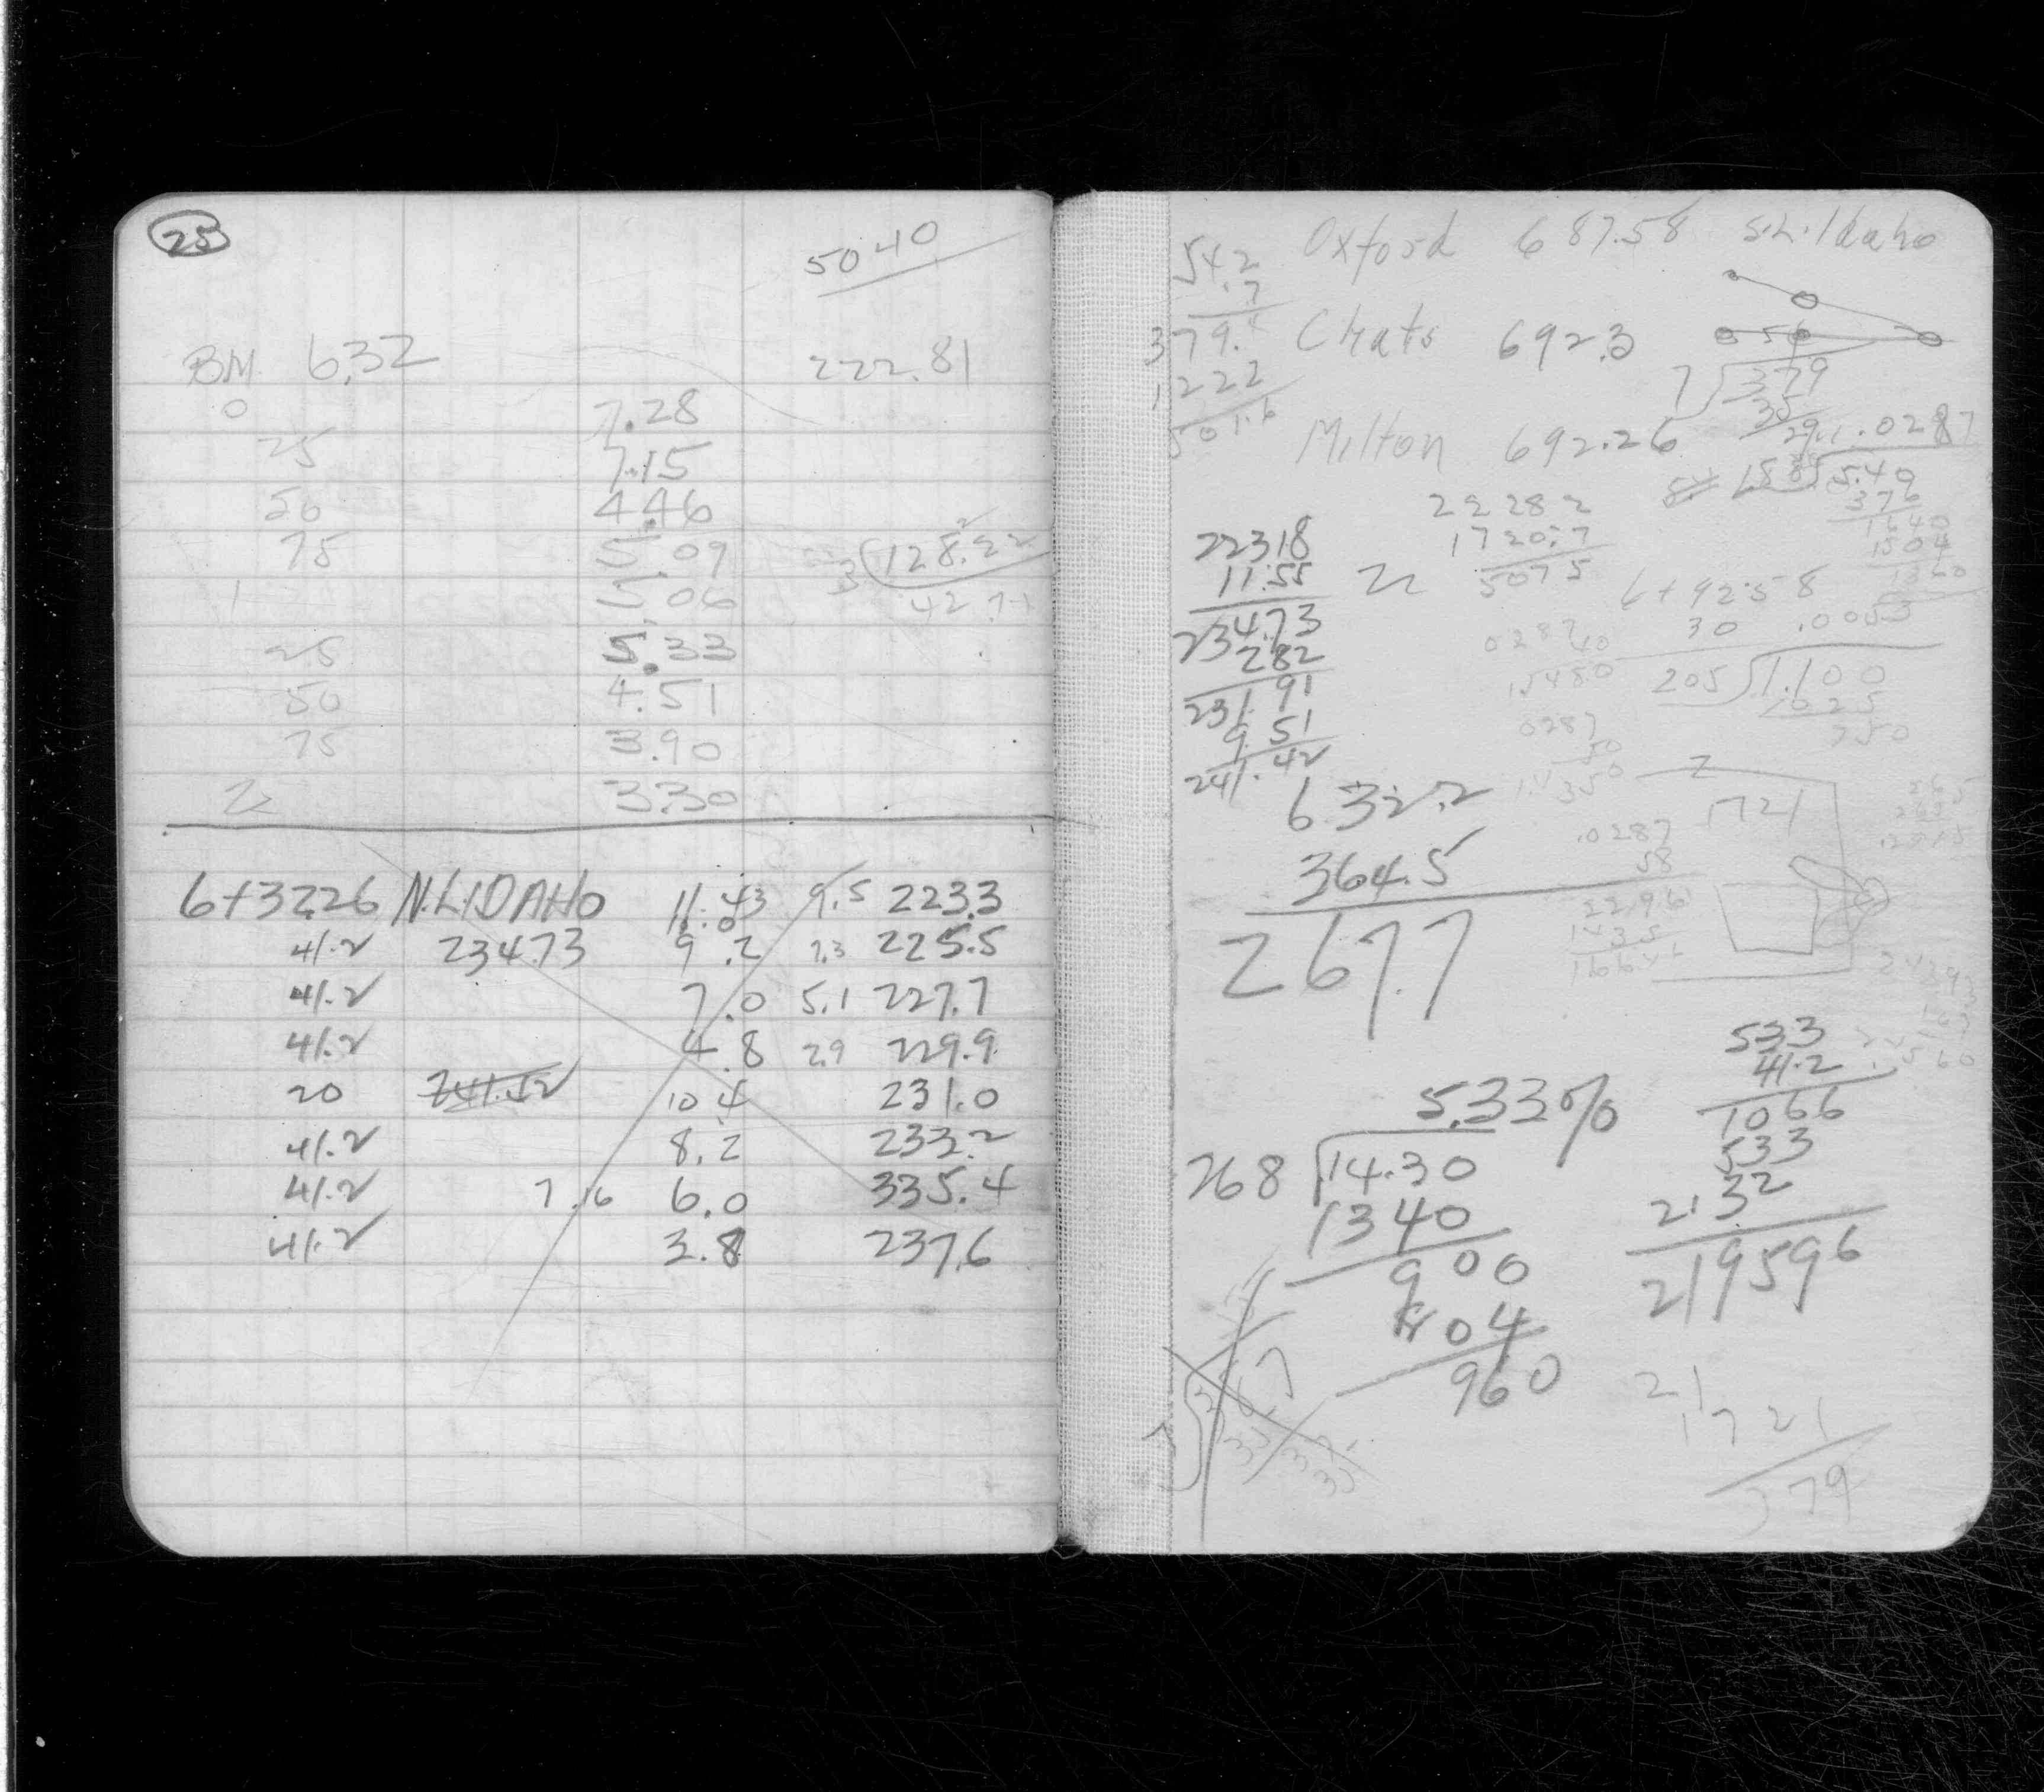 25
5040
BM 6.32 222.81
0 7.28
25 7.15
50 4.46
75 5.09
3 128.22
1 5.06
42.74
25 5.33
50 4.51
75 3.90
2 3.30
6+32.26 N.L.IDAHO 11.43 9.5 223.3
41.2 234.73 9.2 7.3 225.5
41.2 7.0 5.1 227.7
41.2 4.8 2.9 229.9
20 241.52 10.4 231.0
41.2 8.2 233.2
41.2 7.16 6.0 335.4
41.2 3.8 237.6
Oxford 687.58 S.L. Idaho
54.2
.7
379.4
1222
501.6
Chats 692.3
56
7 379
35
29
Milton 692.26
.0287
188 5.40
376
1640
1504
1360
22282
17207
5075
22318
11.55
234.73
282
231.91
9.51
241.42
6+92.58
30 .0053
205 1.100
1025
750
0287
50
1.4350
.0287
58
2296
1435
16646
2
1721
632.2
364.5
267.7
5.33%
268 14.30
1340
900
804
960
533
41.2
1066
533
2132
219596
21
1721
379